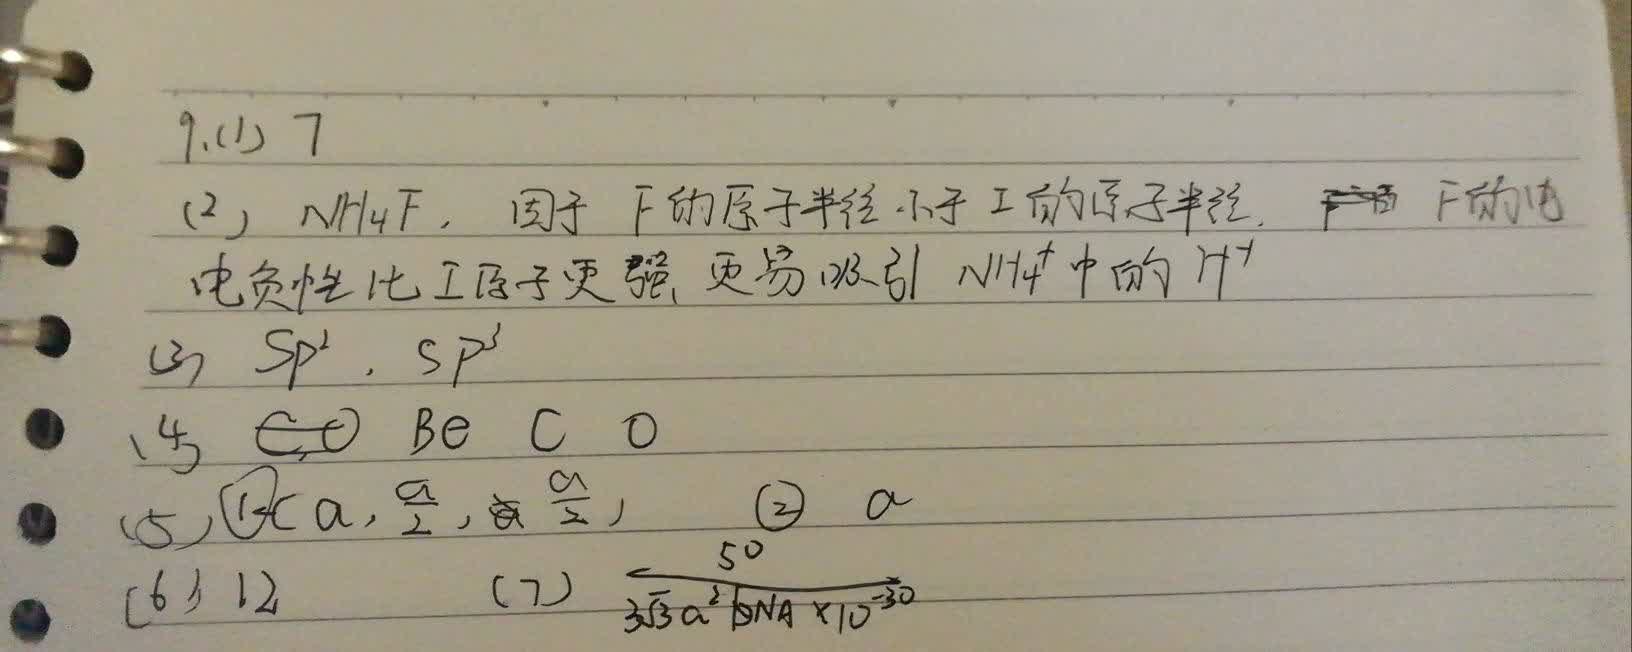 9.(1) 7
(2) NH4F. 因于 F的原子半径小于I的原子半径. F的电
电负性比I原子更强, 更易吸引 NH4⁺中的H⁺
(3) Sp², SP³
(4) Be C O
(5) ①(a, a/2, a/2) ② a
(6) 12 (7) 50/(3√3a²bNA×10⁻³⁰)